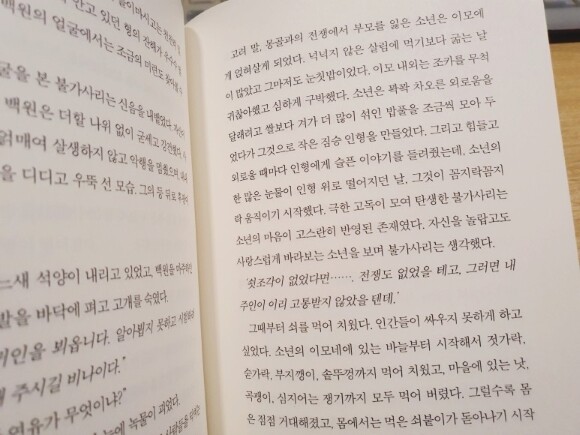 안고 있던 형의 잔해가
백원의 얼굴에서는 조금의 미련도
굴을 본 불가사리는 신음을 내뱉었다.
백원은 더할 나위 없이 굳세고 강건했다.
얽매여 살생하지 않고 악행을 멈췄으며,
을 디디고 우뚝 선 모습, 그의 등 뒤로
느새 석양이 내리고 있었고, 백원을 마주하던
발을 바닥에 펴고 고개를 숙였다.
인을 뵈옵니다. 알아뵙지 못하고
해 주시길 비나이다."
연유가 무엇이냐?"
눈에 녹물이 고였다.
고려 말, 몽골과의 전쟁에서 부모를 잃은 소년은 이모에
게 얹혀살게 되었다. 넉넉지 않은 살림에 먹기보다 굶는 날
이 많았고 그마저도 눈칫밥이었다. 이모 내외는 조카를 무척
귀찮아했고 심하게 구박했다. 소년은 꽉꽉 차오른 외로움을
달래려고 쌀보다 겨가 더 많이 섞인 밥풀을 조금씩 모아 두
었다가 그것으로 작은 짐승 인형을 만들었다. 그리고 힘들고
외로울 때마다 인형에게 슬픈 이야기를 들려줬는데, 소년의
한 많은 눈물이 인형 위로 떨어지던 날, 그것이 꼼지락꼼지
락 움직이기 시작했다. 극한 고독이 모여 탄생한 불가사리는
소년의 마음이 고스란히 반영된 존재였다. 자신을 놀랍고도
사랑스럽게 바라보는 소년을 보며 불가사리는 생각했다.
'쇳조각이 없었다면……, 전쟁도 없었을 테고, 그러면 내
주인이 이리 고통받지 않았을 텐데.'
그때부터 쇠를 먹어 치웠다. 인간들이 싸우지 못하게 하고
싶었다. 소년의 이모네에 있는 바늘부터 시작해서 젓가락,
숟가락, 부지깽이, 솥뚜껑까지 먹어 치웠고, 마을에 있는 낫,
곡괭이, 심지어는 쟁기까지 모두 먹어 버렸다. 그럴수록 몸
은 점점 거대해졌고, 몸에서는 먹은 쇠붙이가 돋아나기 시작